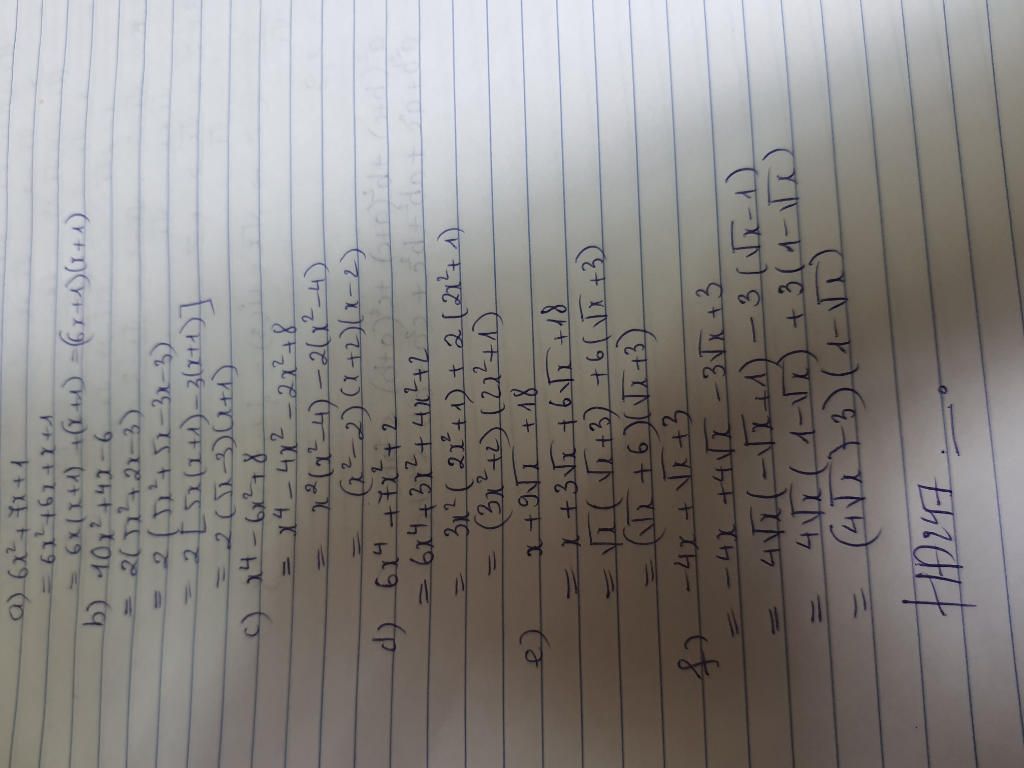 a) 6x² + 7x + 1
= 6x² + 6x + x + 1
= 6x(x+1) + (x+1) = (6x+1)(x+1)
b) 10x² + 4x - 6
= 2(5x² + 2x - 3)
= 2(5x² + 5x - 3x - 3)
= 2[5x(x+1) - 3(x+1)]
= 2(5x-3)(x+1)
c) x⁴ - 6x² + 8
= x⁴ - 4x² - 2x² + 8
= x²(x²-4) - 2(x²-4)
= (x²-2)(x+2)(x-2)
d) 6x⁴ + 7x² + 2
= 6x⁴ + 3x² + 4x² + 2
= 3x²(2x²+1) + 2(2x²+1)
= (3x²+2)(2x²+1)
e) x + 9√x + 18
= x + 3√x + 6√x + 18
= √x(√x+3) + 6(√x+3)
= (√x+6)(√x+3)
f) -4x + √x + 3
= -4x + 4√x - 3√x + 3
= 4√x(-√x+1) - 3(√x-1)
= 4√x(1-√x) + 3(1-√x)
= (4√x+3)(1-√x)